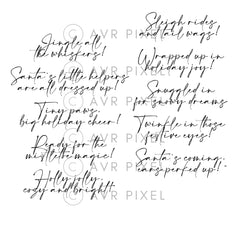 © AVR PIXEL
Jingle all
the whiskers!
Santa's little helpers
are all dressed up!
Tiny paws,
big holiday cheer!
Ready for the
mistletoe magic!
Holly jolly,
cozy and bright!
Sleigh rides
and tail wags!
Wrapped up in
holiday joy!
Snuggled in
for snowy dreams
Twinkle in those
festive eyes!
Santa's coming,
ears perked up!
© AVR PIXEL
© AVR PIXEL
© AVR PIXEL
© AVR PIXEL